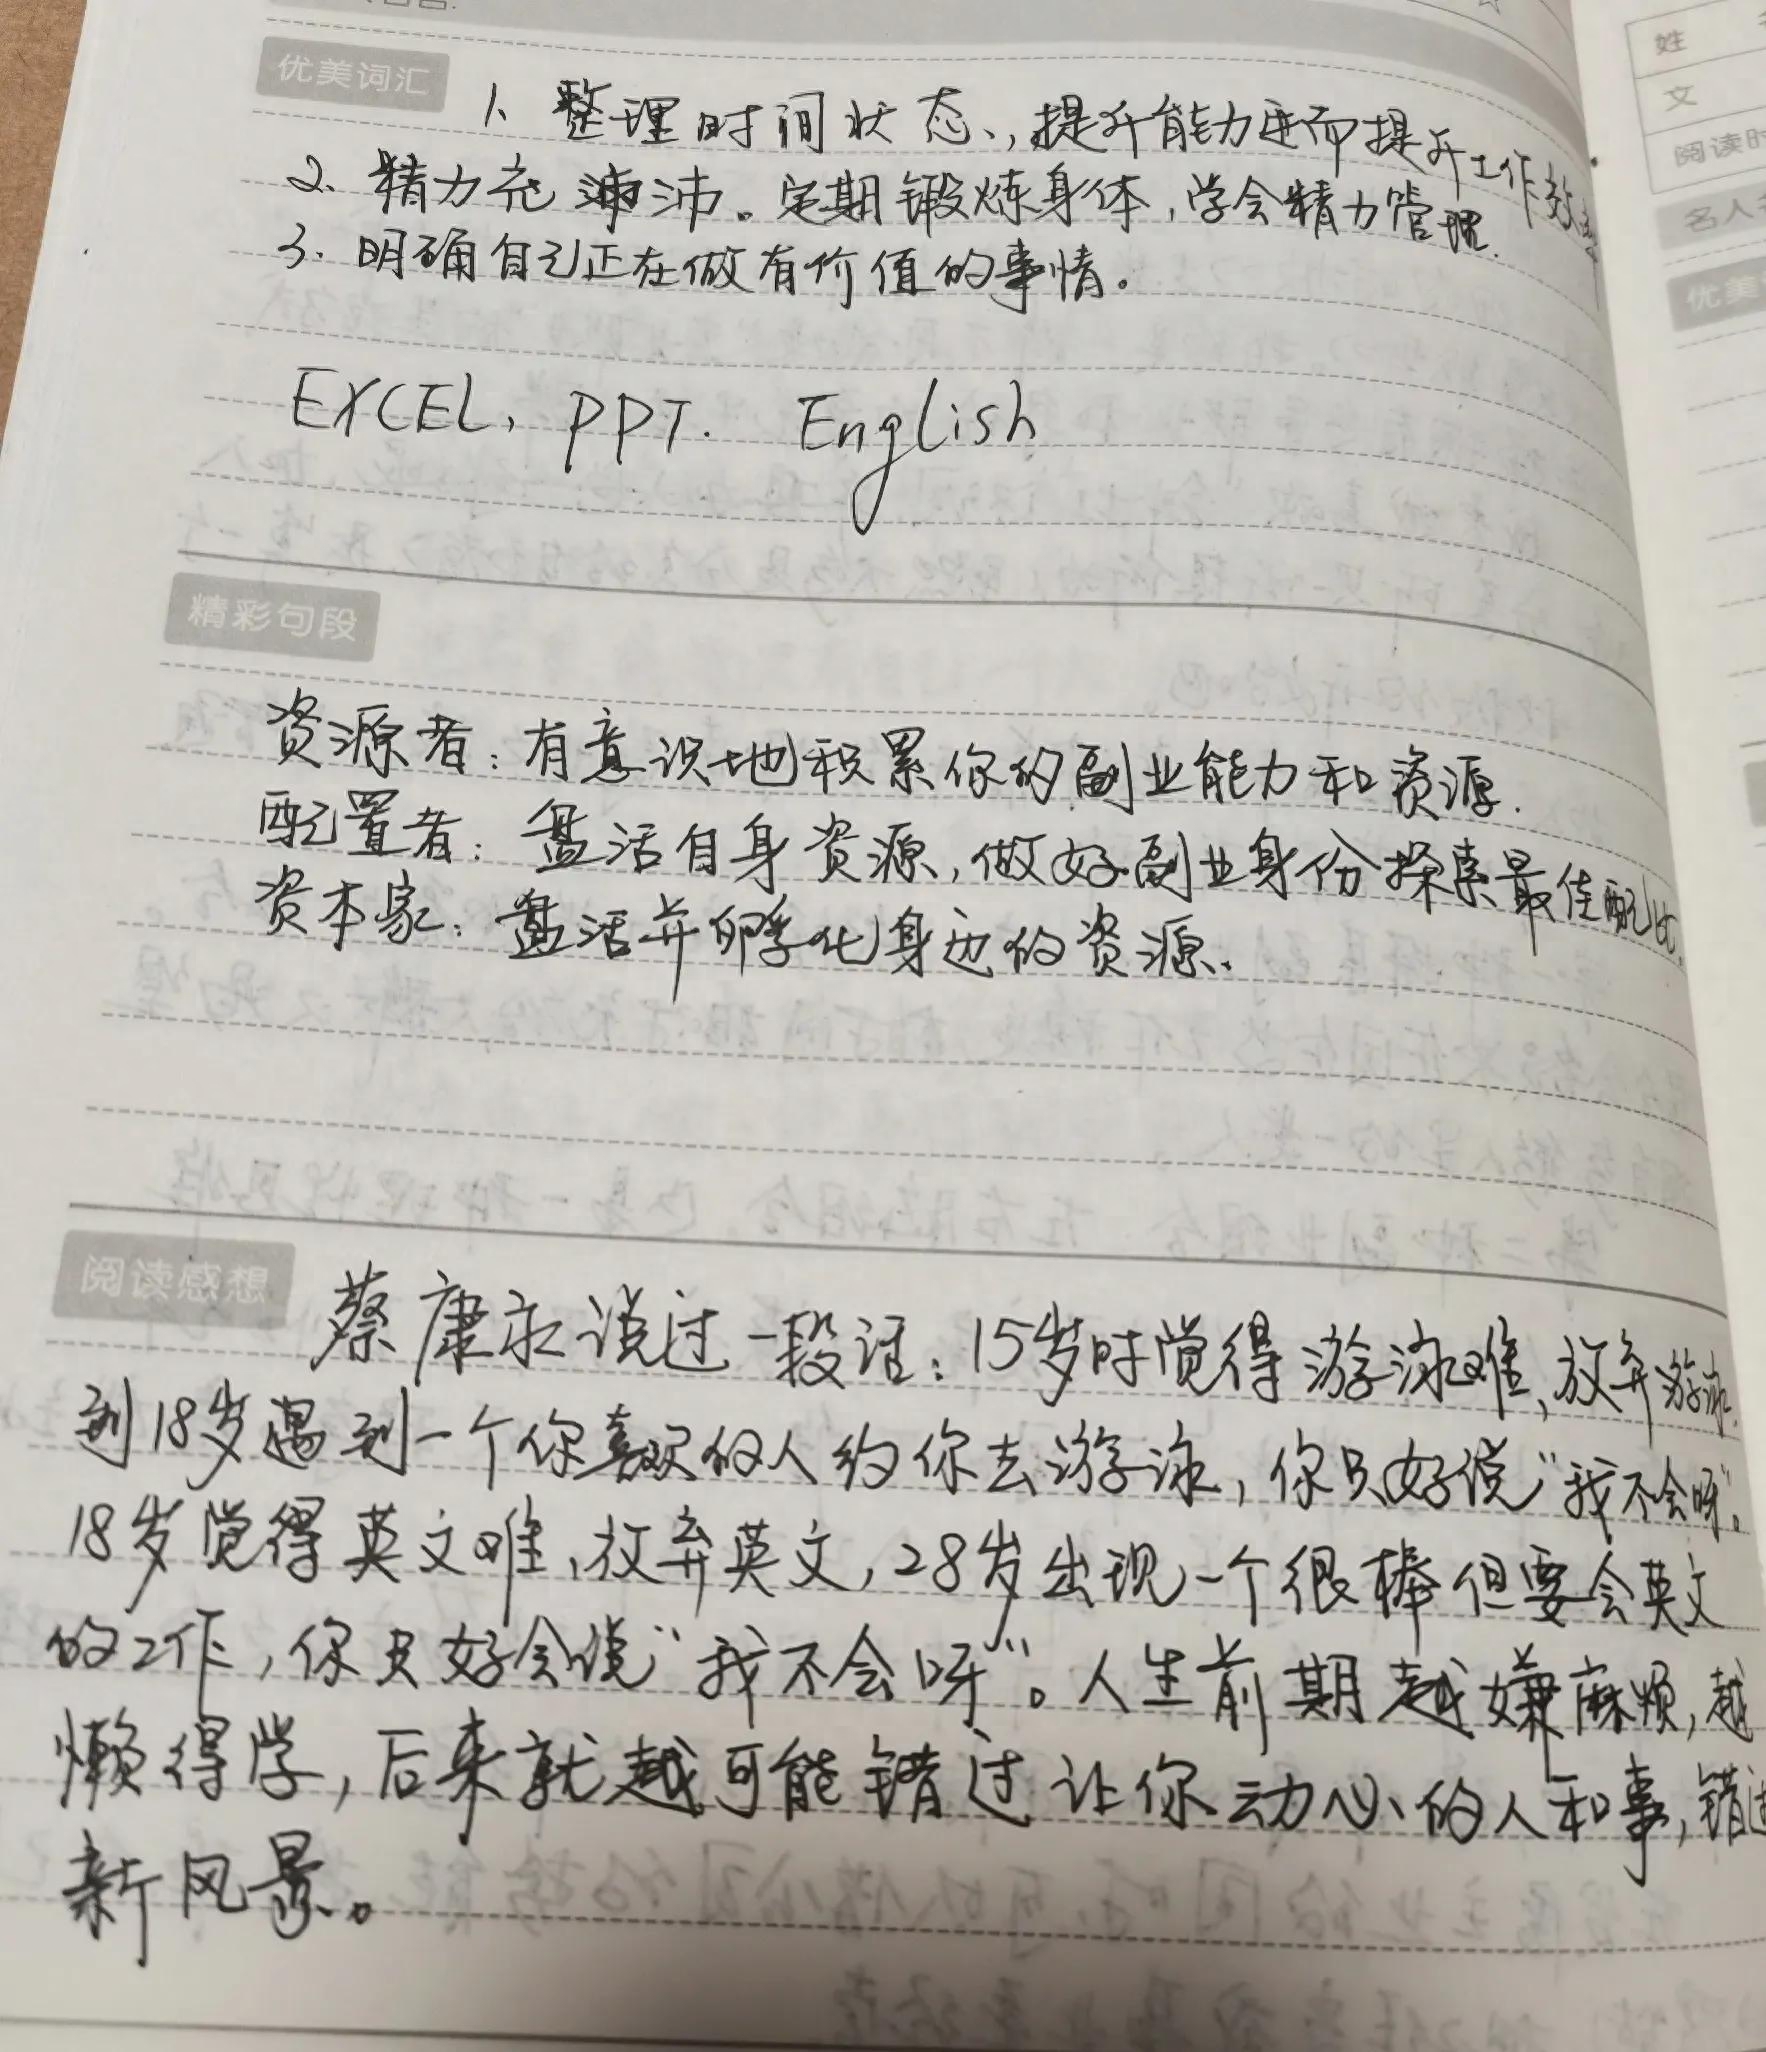 优美词汇
1、整理时间状态、,提升能力进而提升工作效率
2、精力充沛。定期锻炼身体,学会精力管理.
3、明确自己正在做有价值的事情。
EXCEL, PPT. English
精彩句段
资源者:有意识地积累你的副业能力和资源.
配置者:盘活自身资源,做好副业身份探索最佳配比.
资本家:盘活并孵化身边的资源、
阅读感想
蔡康永说过一段话:15岁时觉得游泳难,放弃游泳.
到18岁遇到一个你喜欢的人约你去游泳,你只好说“我不会呀”。
18岁觉得英文难,放弃英文,28岁出现一个很棒但要会英文
的工作,你只好会说“我不会呀”。人生前期越嫌麻烦,越
懒得学,后来就越可能错过让你动心的人和事,错过
新风景。
姓
文
阅读时
名人
优美